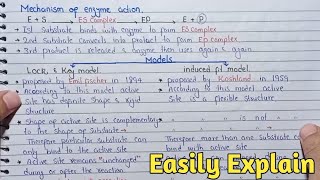 Mechanism of enzyme action.
E + S → ES complex → EP → E + P
1st Substrate binds with enzyme to form ES complex
2nd Substrate Converts into product to form Ep complex
3rd product is released & enzyme then uses again & again
Models
Lock & Key model
proposed by Emil fischer in 1894
According to this model active
site has definite shape & rigid
structure
Shape of active site is complementary
to the shape of Substrate
Therefore particular substrate can
only bind to the active site
Active site remains "unchanged"
during or after the reaction
induced fit model
proposed by Koshland in 1959
According to this model active
site is a flexible structure
" " " is not "
Therefore more than one Substrate can
bind with active site
Easily Explain